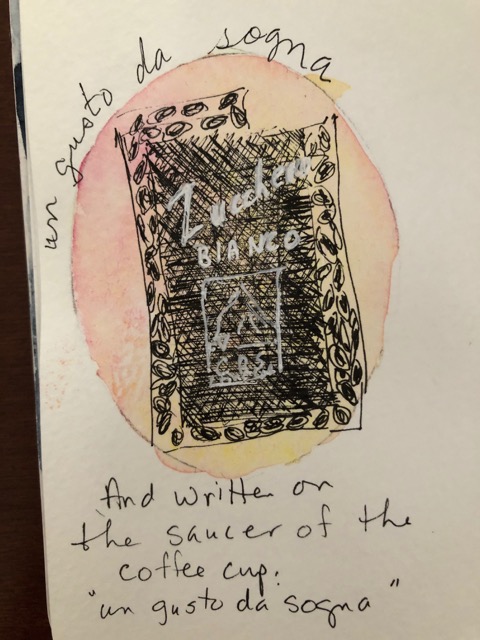 un gusto da sogna
Zucchero
BIANCO
And written on
the saucer of the
coffee cup:
"un gusto da sogna"